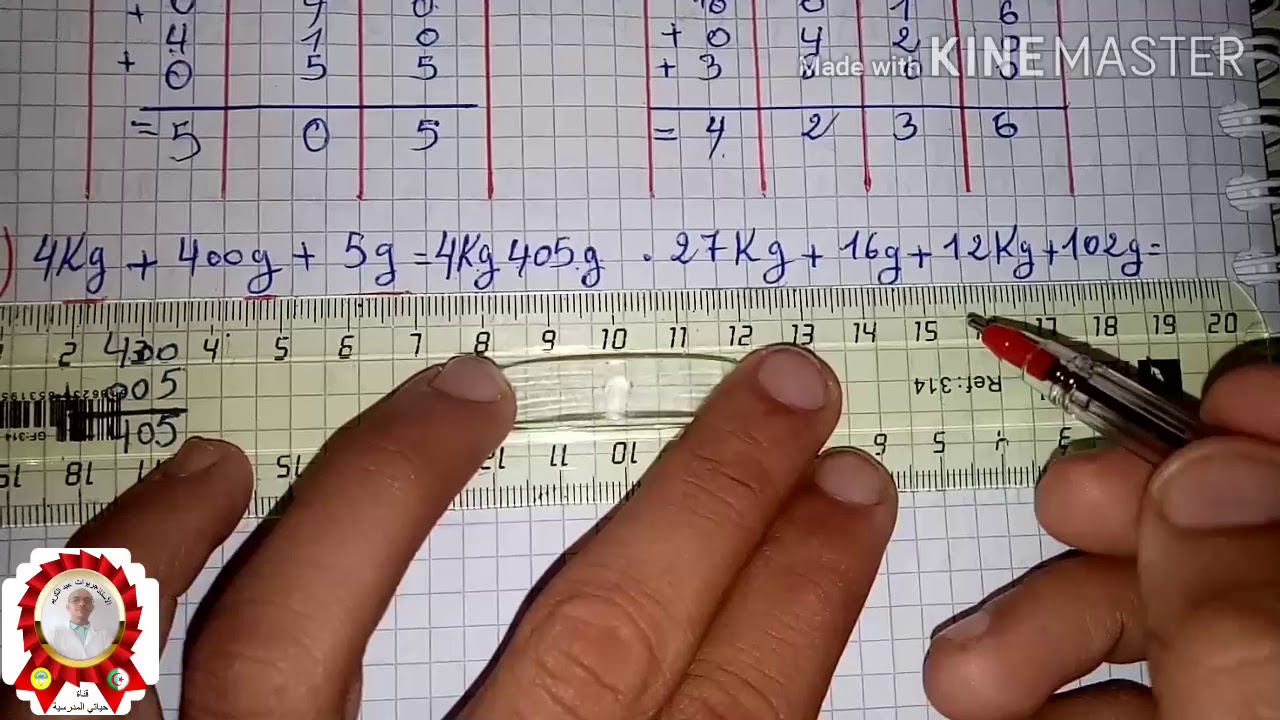 Made with KINEMASTER
+ 4 1 0 + 0 4 2
+ 0 5 5 + 3
= 5 0 5 = 4 2 3 6
) 4Kg + 400g + 5g = 4Kg 405g . 27Kg + 16g + 12Kg + 102g =
2 4 5 6 7 8 9 10 11 12 13 14 15 17 18 19 20
400
005
405
Ref:314
GF:314
18 15 11 10 6 5 4 3
الأستاذ حريوات عبد الكريم
قناة
حياتي المدرسية